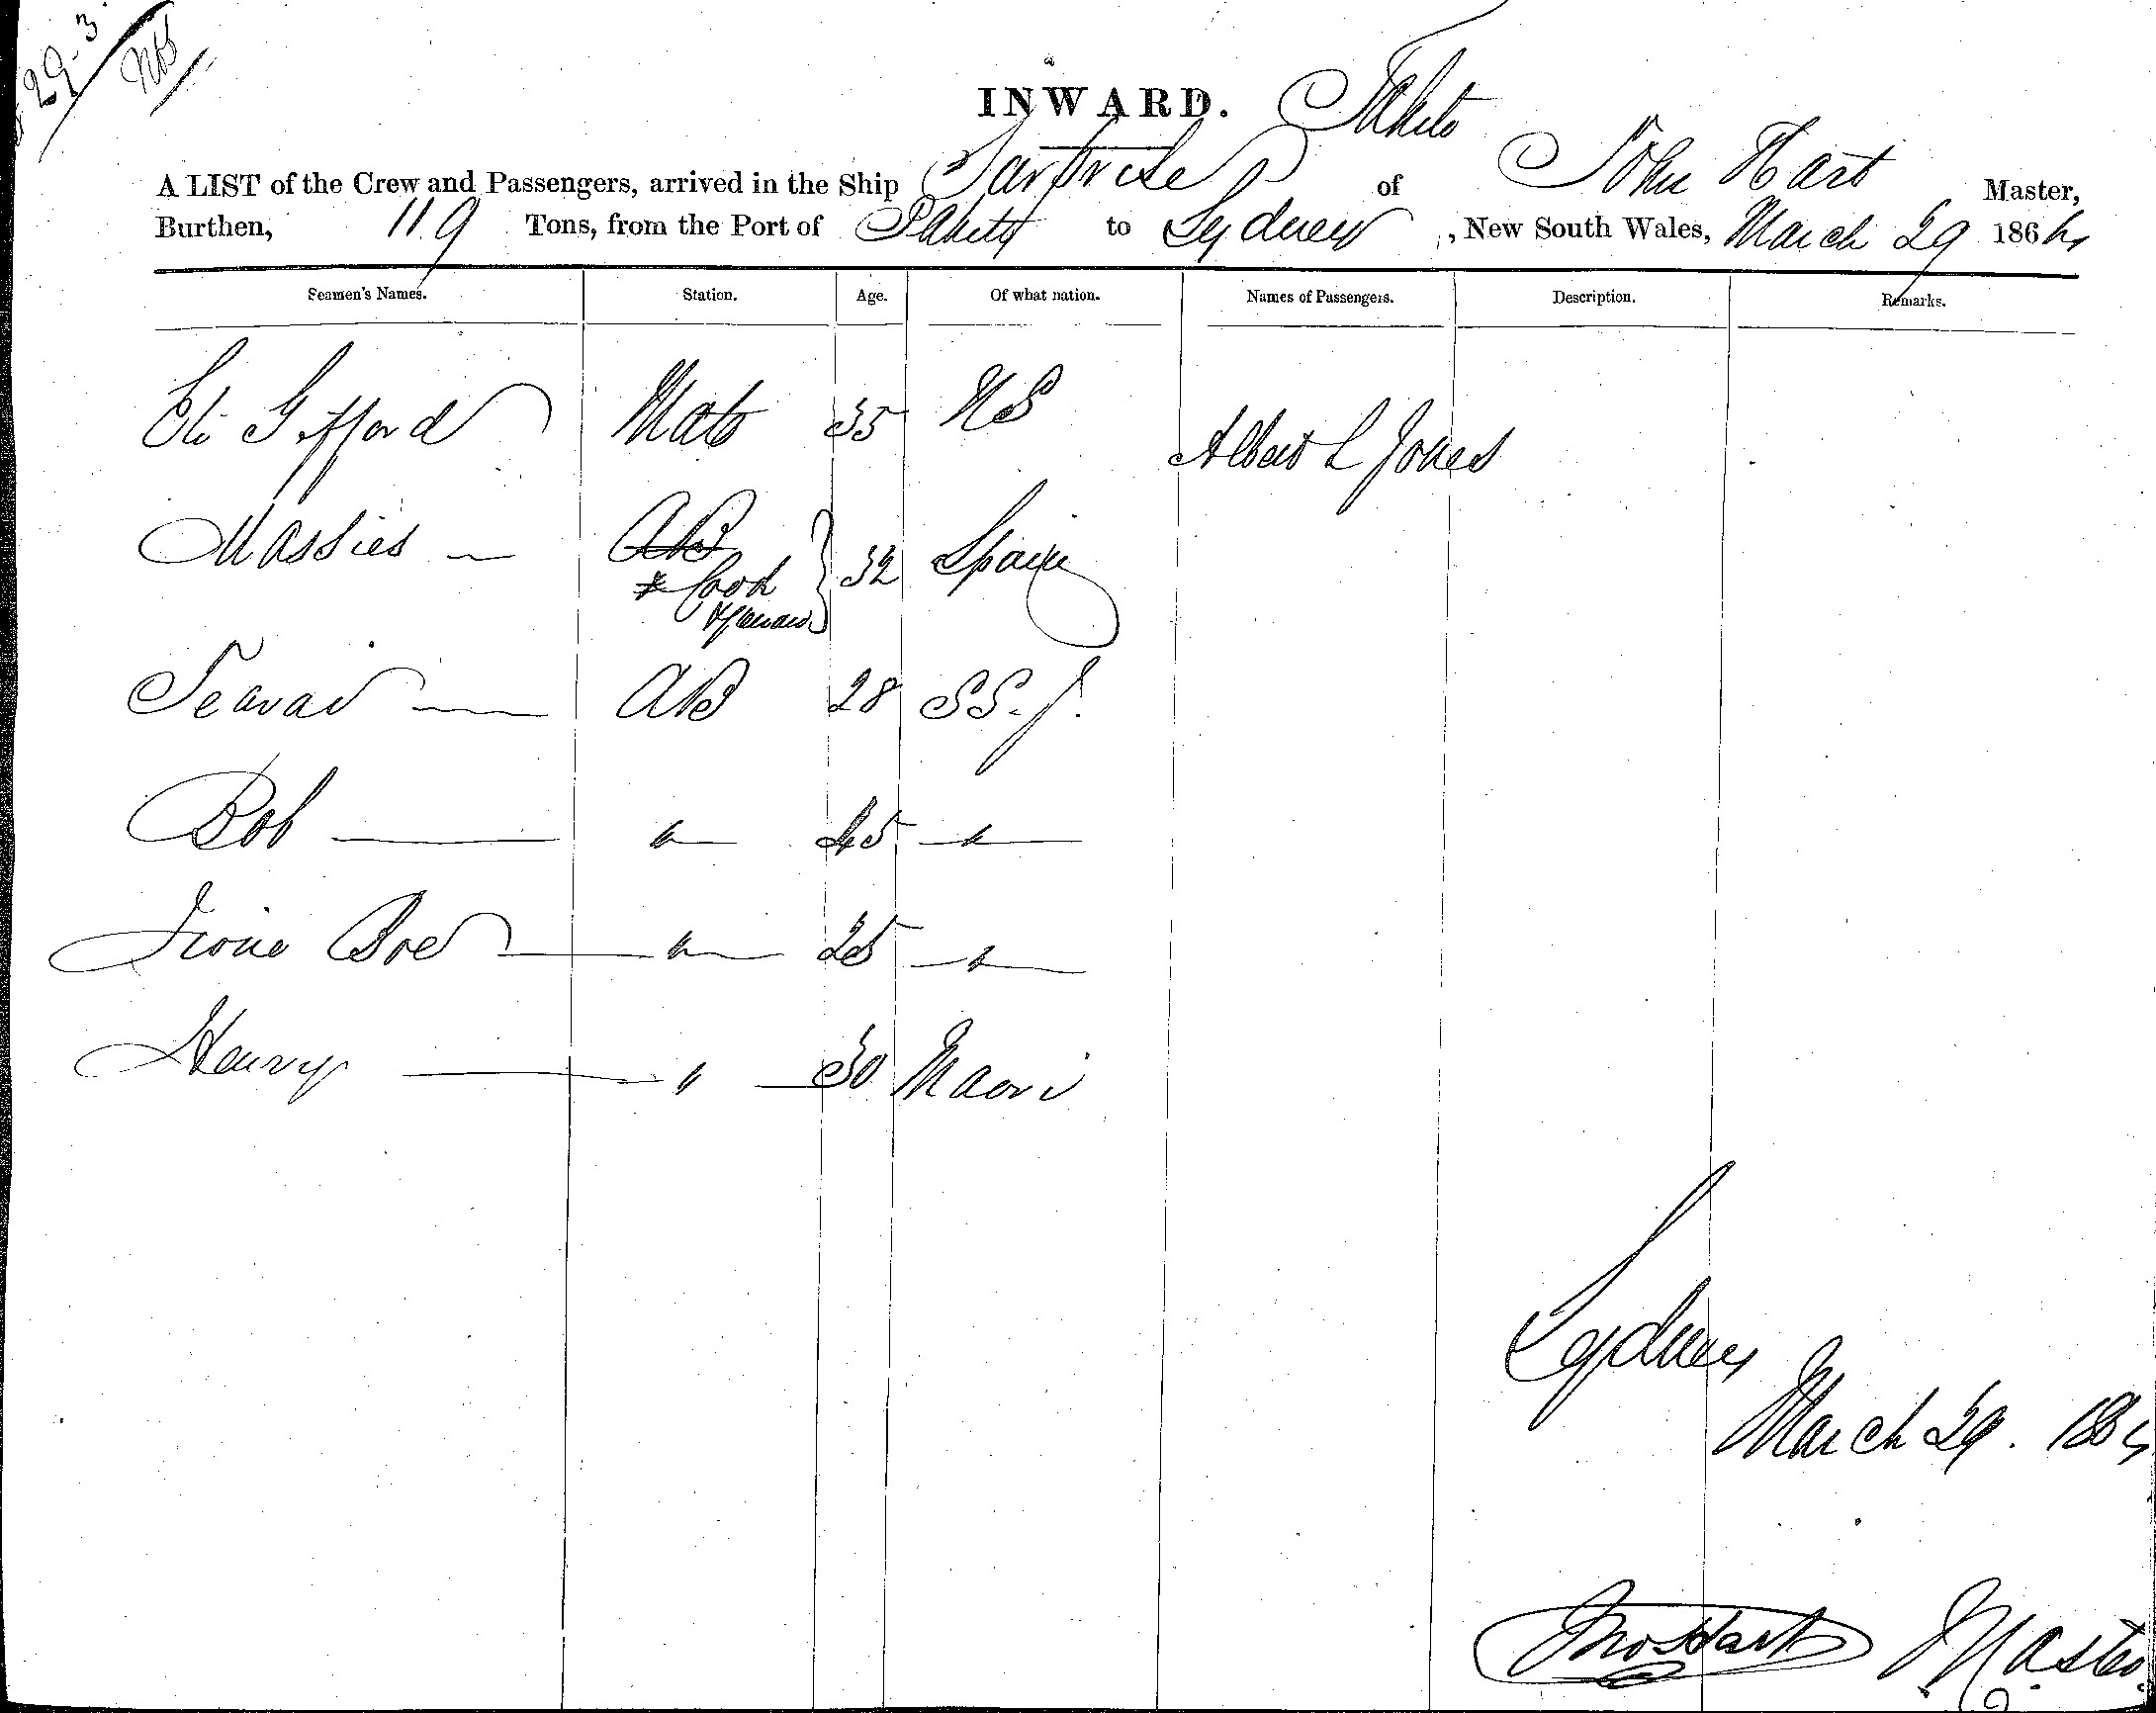 29-3
INWARD. Tahito
A LIST of the Crew and Passengers, arrived in the Ship Surprise of John Hart Master,
Burthen, 119 Tons, from the Port of Tahity to Sydney, New South Wales, March 29 1864
Seamen's Names. Station. Age. Of what nation. Names of Passengers. Description. Remarks.
Eli Gifford Mate 35 US
Albert L Jones
Massies — AB 32 Spain
& Cook
Tearai — AB 28 SS. I.
Bob — " 45 "
Boe — " 25 "
Henry — " 30 Maori
Sydney
March 29. 1864
Jno Hart Master